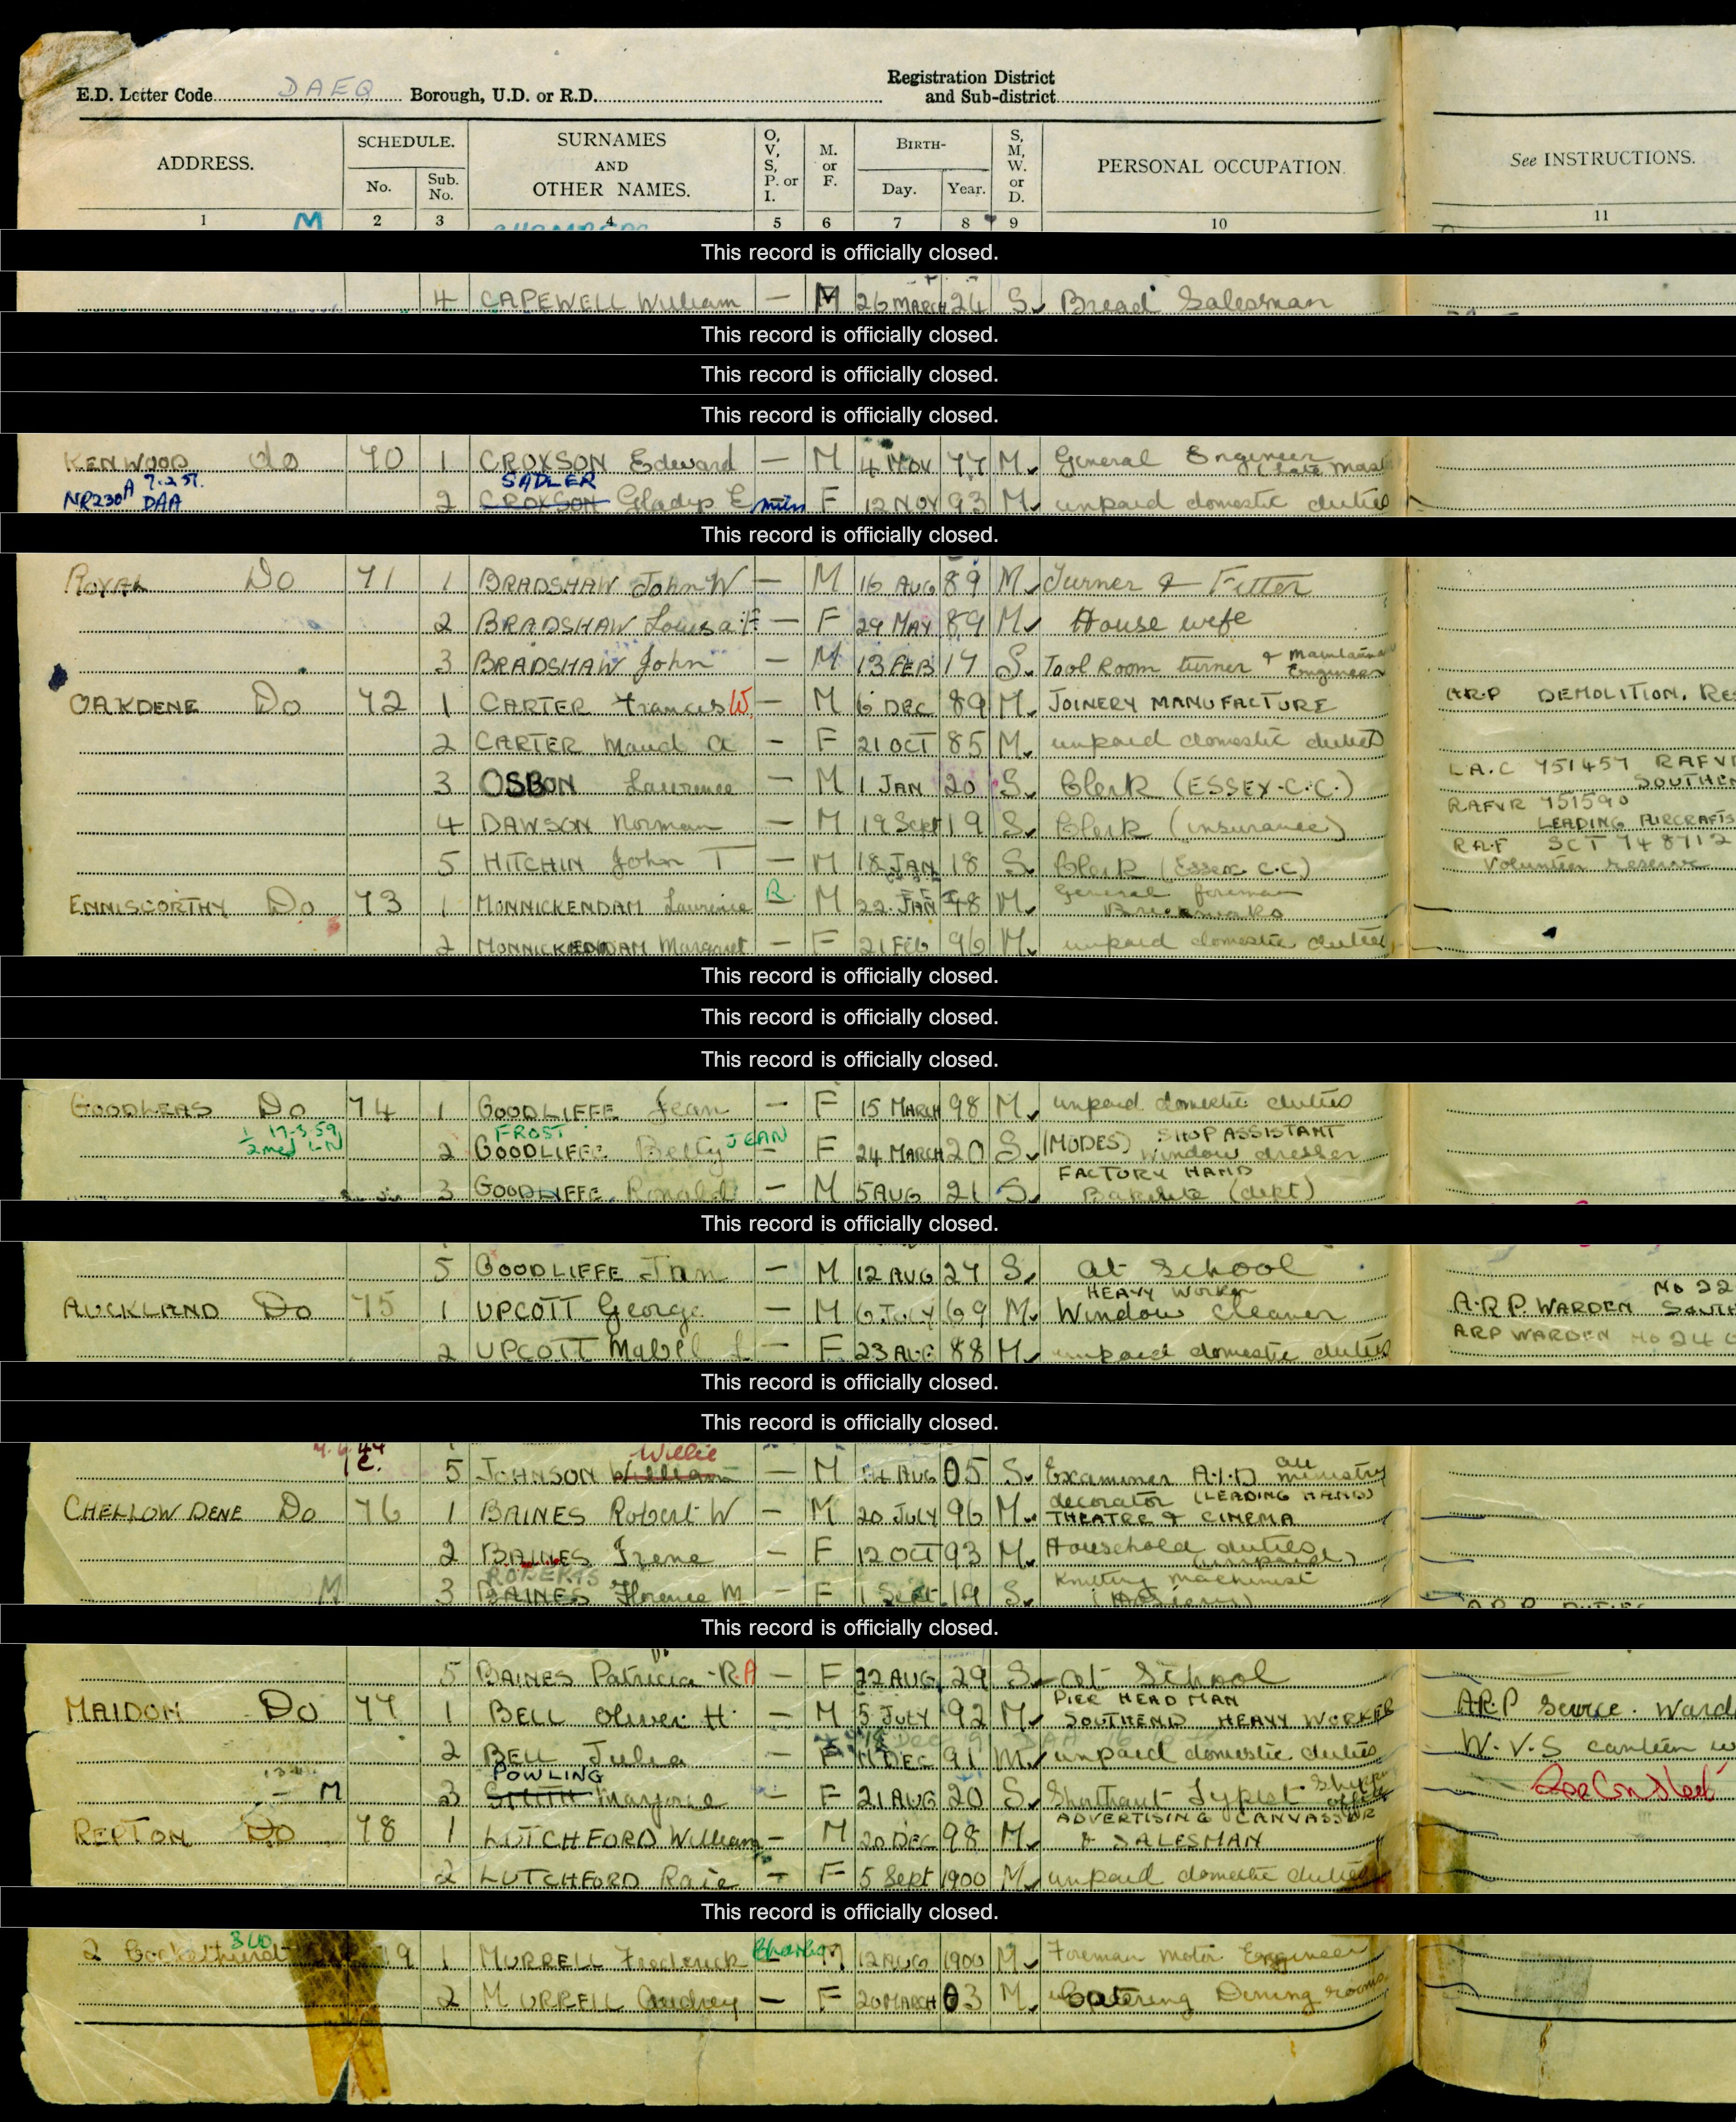 E.D. Letter Code DAEQ Borough, U.D. or R.D. Registration District and Sub-district
ADDRESS. SCHEDULE. No. Sub. No. SURNAMES AND OTHER NAMES. O, V, S, P. or I. M. or F. BIRTH- Day. Year. S, M, W. or D. PERSONAL OCCUPATION. See INSTRUCTIONS.
1 M 2 3 4 5 6 7 8 9 10 11
This record is officially closed.
4 CAPEWELL William — M 26 MARCH 24 S Bread Salesman
This record is officially closed.
This record is officially closed.
This record is officially closed.
KENWOOD do 70 1 CROXSON Edward — M 4 NOV 77 M General Engineer
7.2.57. SADLER
NR230A DAA 2 CROXSON Gladys E F 12 NOV 93 M unpaid domestic duties
This record is officially closed.
ROYAL Do 71 1 BRADSHAW John W — M 16 AUG 89 M Turner & Fitter
2 BRADSHAW Louisa F — F 29 MAY 89 M House wife
3 BRADSHAW John — M 13 FEB 17 S Tool Room turner & Engineer
OAKDENE Do 72 1 CARTER Francis W. — M 6 DEC 89 M JOINERY MANUFACTURE ARP DEMOLITION.
2 CARTER Maud A — F 21 OCT 85 M unpaid domestic duties
3 OSBON Laurence — M 1 JAN 20 S Clerk (ESSEX C.C.) L.A.C 751457 RAFVR
RAFVR 751590
4 DAWSON Norman — M 19 Sept 19 S Clerk (insurance) LEADING
5 HITCHIN John T — M 18 JAN 18 S Clerk (Essex C.C) RAF SCT 748712
Volunteer reserve
ENNISCORTHY Do 73 1 MONNICKENDAM Laurence R M 22 JAN 98 M General foreman
2 MONNICKENDAM Margaret — F 21 FEB 96 M unpaid domestic duties
This record is officially closed.
This record is officially closed.
This record is officially closed.
GOODLEAS Do 74 1 GOODLIFFE Jean — F 15 MARCH 98 M unpaid domestic duties
17-3-59 FROST JEAN SHOP ASSISTANT
2 GOODLIFFE Betty — F 24 MARCH 20 S (MODES) Window dresser
FACTORY HAND
3 GOODLIFFE Ronald — M 5 AUG 21 S Bakelite (dept)
This record is officially closed.
5 GOODLIFFE Ian — M 12 AUG 27 S at School
HEAVY Worker
AUCKLAND Do 75 1 UPCOTT George — M 6 JULY 69 M Window Cleaner A.R.P. WARDEN No 22
2 UPCOTT Mabel L — F 23 AUG 88 M unpaid domestic duties ARP WARDEN No 24
This record is officially closed.
This record is officially closed.
Willie
5 JOHNSON William — M AUG 05 S Examiner A.I.D air ministry
CHELLOW DENE Do 76 1 BAINES Robert W — M 20 JULY 96 M decorator (LEADING HAND) THEATRE & CINEMA
2 BAINES Irene — F 12 OCT 93 M Household duties (unpaid)
ROBERTS
M 3 BAINES Florence M — F 1 Sept 19 S Knitting Machinist (Hosiery)
This record is officially closed.
5 BAINES Patricia R.A — F 22 AUG 29 S at School
PIER HEAD MAN
MAIDOM Do 77 1 BELL Oliver H — M 5 JULY 92 M SOUTHEND HEAVY WORKER
2 BELL Julia — F 11 DEC 91 M unpaid domestic duties W.V.S canteen
POWLING
M 3 SMITH Marjorie — F 21 AUG 20 S Typist
ADVERTISING CANVASSER
REPTON Do 78 1 LUTCHFORD William — M 20 DEC 98 M & SALESMAN
2 LUTCHFORD Raie — F 5 Sept 1900 M unpaid domestic duties
This record is officially closed.
2 79 1 MURRELL Frederick M 12 AUG 1900 M Foreman Motor Engineer
2 MURRELL Audrey — F 20 MARCH 03 M Catering Dining rooms